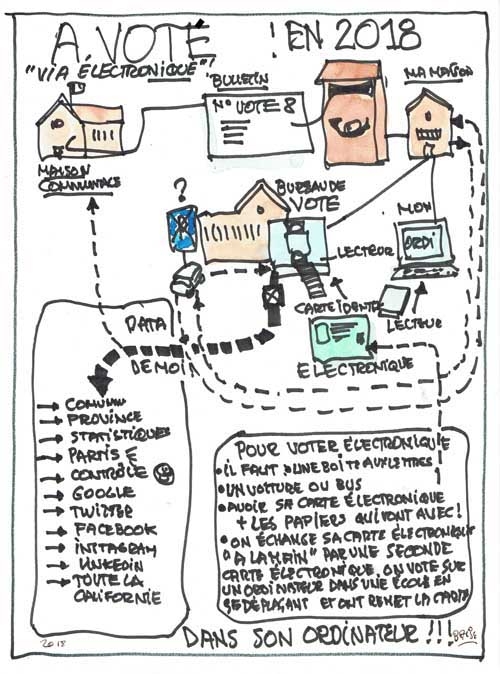 A VOTÉ ! EN 2018
"VIA ÉLECTRONIQUE"!
BULLETIN
MA MAISON
N° VOTE 8
MAISON
COMMUNALE
?
BUREAU DE
VOTE
MON
ORDI
LECTEUR
CARTE IDENTITÉ
LECTEUR
ÉLECTRONIQUE
DATA
DE MOI
COMMUN
PROVINCE
STATISTIQUES
PARTIS €
CONTRÔLE
GOOGLE
TWITTER
FACEBOOK
INSTAGRAM
LINKEDIN
TOUTE LA
CALIFORNIE
POUR VOTER ÉLECTRONIQUE
• IL FAUT : UNE BOITE AUX LETTRES
• UN VOITURE OU BUS
• AVOIR SA CARTE ÉLECTRONIQUE
+ LES PAPIERS QUI VONT AVEC!
• ON ÉCHANGE SA CARTE ÉLECTRONIQUE
"A LA MAIN" PAR UNE SECONDE
CARTE ÉLECTRONIQUE, ON VOTE SUR
UN ORDINATEUR DANS UNE ÉCOLE EN
SE DÉPLAÇANT ET ONT REMET LA CARTE
DANS SON ORDINATEUR !!!
2018